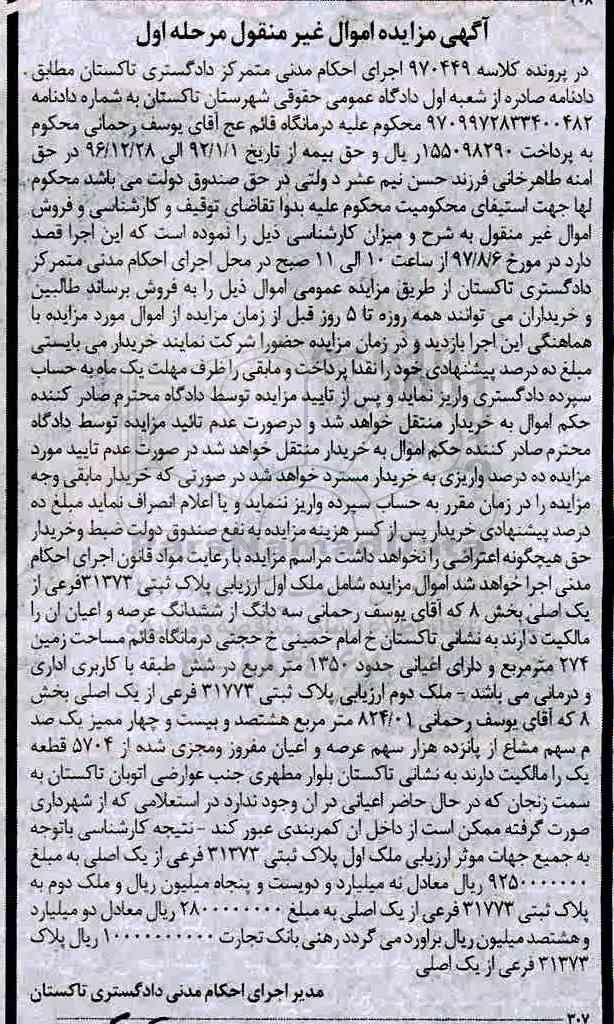 ۲۰۸
آگهی مزایده اموال غیر منقول مرحله اول
در پرونده کلاسه ۹۷۰۴۴۹ اجرای احکام مدنی متمرکز دادگستری تاکستان مطابق
دادنامه صادره از شعبه اول دادگاه عمومی حقوقی شهرستان تاکستان به شماره دادنامه
۹۷۰۹۹۷۲۸۳۳۴۰۰۴۸۲ محکوم علیه درمانگاه قائم عج آقای یوسف رحمانی محکوم
به پرداخت ۱۵۵۰۹۸۲۹۰ر یال و حق بیمه از تاریخ ۹۲/۱/۱ الی ۹۶/۱۲/۲۸ در حق
امنه طاهرخانی فرزند حسن نیم عشر د ولتی در حق صندوق دولت می باشد محکوم
لها جهت استیفای محکومیت محکوم علیه بدوا تقاضای توقیف و کارشناسی و فروش
اموال غیر منقول به شرح و میزان کارشناسی ذیل را نموده است که این اجرا قصد
دارد در مورخ ۹۷/۸/۶ از ساعت ۱۰ الی ۱۱ صبح در محل اجرای احکام مدنی متمرکز
دادگستری تاکستان از طریق مزایده عمومی اموال ذیل را به فروش برساند طالبین
و خریداران می توانند همه روزه تا ۵ روز قبل از زمان مزایده از اموال مورد مزایده با
هماهنگی این اجرا بازدید و در زمان مزایده حضورا شرکت نمایند خریدار می بایستی
مبلغ ده درصد پیشنهادی خود را نقدا پرداخت و مابقی را ظرف مهلت یک ماه به حساب
سپرده دادگستری واریز نماید و پس از تایید مزایده توسط دادگاه محترم صادر کننده
حکم اموال به خریدار منتقل خواهد شد و درصورت عدم تائید مزایده توسط دادگاه
محترم صادر کننده حکم اموال به خریدار منتقل خواهد شد در صورت عدم تایید مورد
مزایده ده درصد واریزی به خریدار مسترد خواهد شد در صورتی که خریدار مابقی وجه
مزایده را در زمان مقرر به حساب سپرده واریز ننماید و یا اعلام انصراف نماید مبلغ ده
درصد پیشنهادی خریدار پس از کسر هزینه مزایده به نفع صندوق دولت ضبط وخریدار
حق هیچگونه اعتراضی را نخواهد داشت مراسم مزایده با رعایت مواد قانون اجرای احکام
مدنی اجرا خواهد شد اموال مزایده شامل ملک اول ارزیابی پلاک ثبتی ۳۱۳۷۳فرعی از
یک اصلی بخش ۸ که آقای یوسف رحمانی سه دانگ از ششدانگ عرصه و اعیان ان را
مالکیت دارند به نشانی تاکستان خ امام خمینی خ حجتی درمانگاه قائم مساحت زمین
۲۷۴ مترمربع و دارای اعیانی حدود ۱۳۵۰ متر مربع در شش طبقه با کاربری اداری
و درمانی می باشد - ملک دوم ارزیابی پلاک ثبتی ۳۱۷۷۳ فرعی از یک اصلی بخش
۸ که آقای یوسف رحمانی ۸۲۴/۰۱ متر مربع هشتصد و بیست و چهار ممیز یک صد
م سهم مشاع از پانزده هزار سهم عرصه و اعیان مفروز ومجزی شده از ۵۷۰۴ قطعه
یک را مالکیت دارند به نشانی تاکستان بلوار مطهری جنب عوارضی اتوبان تاکستان به
سمت زنجان که در حال حاضر اعیانی در ان وجود ندارد در استعلامی که از شهرداری
صورت گرفته ممکن است از داخل ان کمربندی عبور کند - نتیجه کارشناسی باتوجه
به جمیع جهات موثر ارزیابی ملک اول پلاک ثبتی ۳۱۳۷۳ فرعی از یک اصلی به مبلغ
۹۲۵۰۰۰۰۰۰۰ ریال معادل نه میلیارد و دویست و پنجاه میلیون ریال و ملک دوم به
پلاک ثبتی ۳۱۷۷۳ فرعی از یک اصلی به مبلغ ۲۸۰۰۰۰۰۰۰۰ ریال معادل دو میلیارد
و هشتصد میلیون ریال براورد می گردد رهنی بانک تجارت ۱۰۰۰۰۰۰۰۰۰۰ ریال پلاک
۳۱۳۷۳ فرعی از یک اصلی
مدیر اجرای احکام مدنی دادگستری تاکستان
۳۰۷